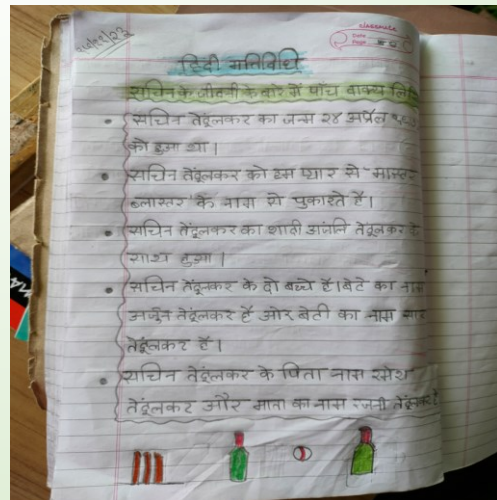 classmate
Date
Page
हिंदी गतिविधि
सचिन के जीवनी के बारे में पाँच वाक्य
• सचिन तेंदूलकर का जन्म २४ अप्रैल
को हुआ था।
• सचिन तेंदूलकर को हम प्यार से "मास्टर
ब्लास्टर" के नाम से पुकारते हैं।
• सचिन तेंदूलकर का शादी अंजलि तेंदूलकर के
साथ हुआ।
• सचिन तेंदूलकर के दो बच्चे हैं। बेटे का नाम
अर्जुन तेंदूलकर हैं और बेटी का नाम
तेंदूलकर हैं।
• सचिन तेंदूलकर के पिता नाम रमेश
तेंदूलकर और माता का नाम रजनी तेंदूलकर है